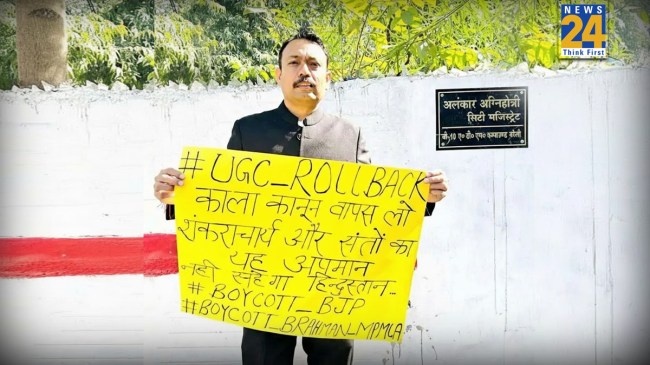 NEWS
24
Think First
अलंकार अग्निहोत्री
सिटी मजिस्ट्रेट
#UGC_ROLLBACK
काला कानून वापस लो
शंकराचार्य और संतों का
यह अपमान
नही सहेगा हिन्दुस्तान..
#BOYCOTT_BJP
#BOYCOTT_BRAHMAN_MPMLA